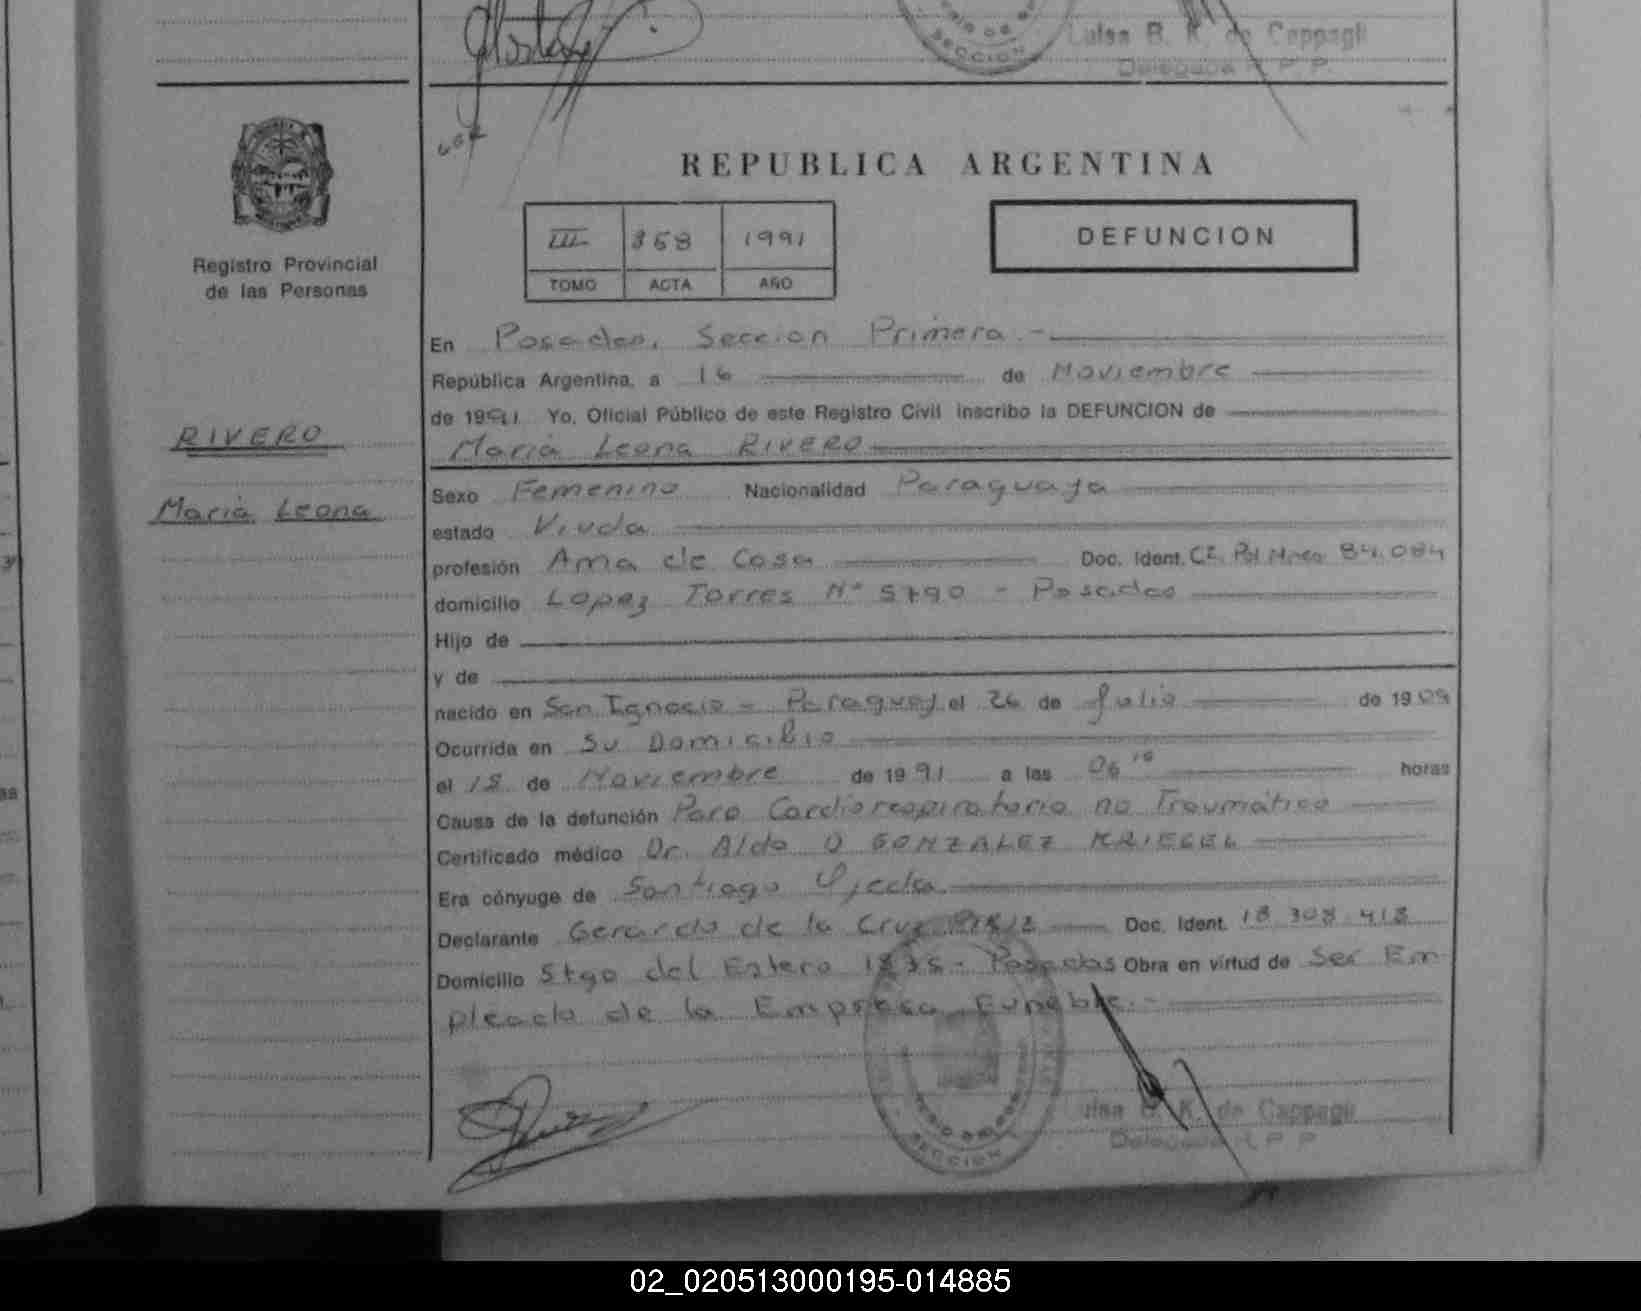 Luisa B. K. de Cappagli
Delegada R P P.
REPUBLICA ARGENTINA
III 368 1991
TOMO ACTA AÑO
DEFUNCION
Registro Provincial
de las Personas
RIVERO
Maria Leona
En Posadas, Seccion Primera.-
República Argentina, a 16 de Noviembre
de 1991 Yo, Oficial Público de este Registro Civil inscribo la DEFUNCION de
Maria Leona RIVERO
Sexo Femenino Nacionalidad Paraguaya
estado Viuda
profesión Ama de Casa Doc. Ident. CI. Pol Mnes 84.084
domicilio Lopez Torres Nº 5790 - Posadas
Hijo de
y de
nacido en San Ignacio - Paraguay el 26 de Julio de 1909
Ocurrida en Su Domicilio
el 15 de Noviembre de 1991 a las 06 10 horas
Causa de la defunción Paro Cardiorespiratorio no Traumático
Certificado médico Dr. Aldo O GONZALEZ KRIEGEL
Era cónyuge de Santiago Ojeda
Declarante Gerardo de la Cruz Doc. Ident. 18 308 418
Domicilio Stgo del Estero - Posadas Obra en virtud de Ser Em
pleado de la Empresa Funebre.-
SECCION
Luisa B. K. de Cappagli
Delegada R P P
02_020513000195-014885